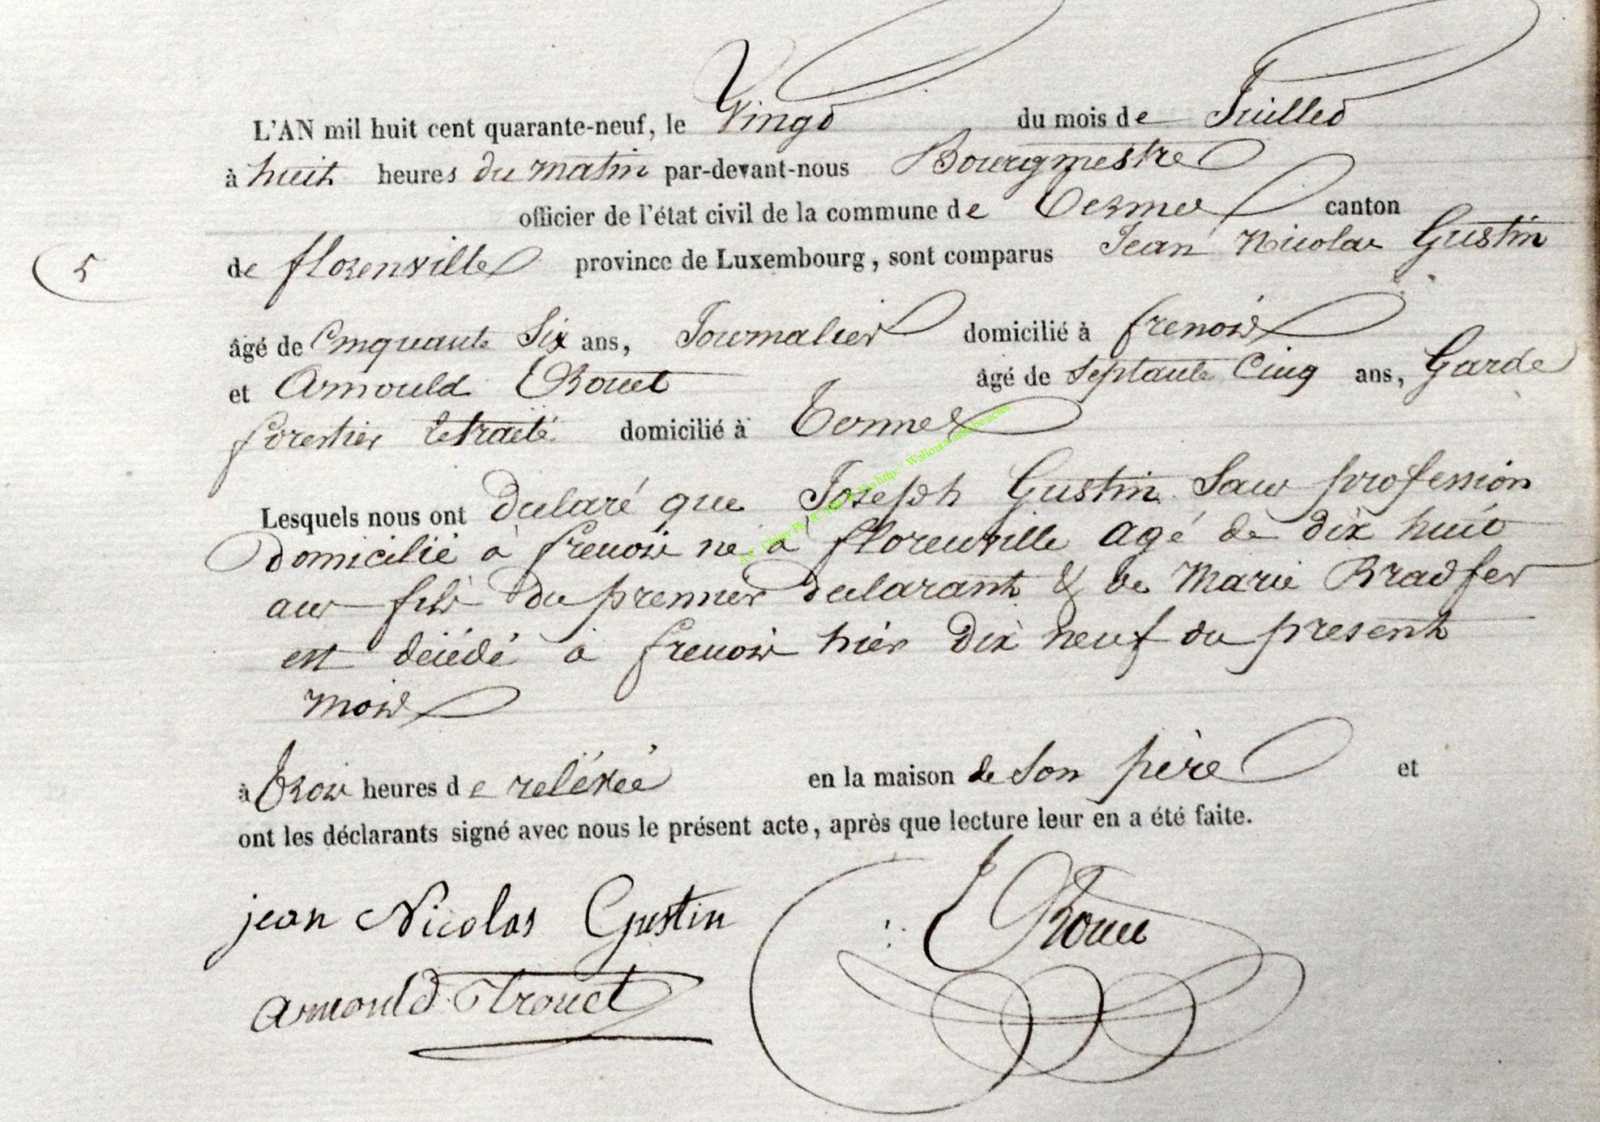 L'AN mil huit cent quarante-neuf, le Vingt du mois de Juillet
à huit heures du matin par-devant-nous Bourgmestre
officier de l'état civil de la commune de Termes canton
5
de florenville province de Luxembourg, sont comparus Jean Nicolas Gustin
âgé de Cinquante Six ans, Journalier domicilié à frenois
et Arnould Trouet âgé de Septante Cinq ans, Garde
forestier retraité domicilié à Termes
Lesquels nous ont declaré que Joseph Gustin Sans profession
domicilié à frenois né à florenville agé de dix huit
ans fils du premier declarant & de Marie Bradfer
est décédé à frenois hier dix neuf du present
mois
à trois heures de relévée en la maison de Son père et
ont les déclarants signé avec nous le présent acte, après que lecture leur en a été faite.
jean Nicolas Gustin
arnould Trouet